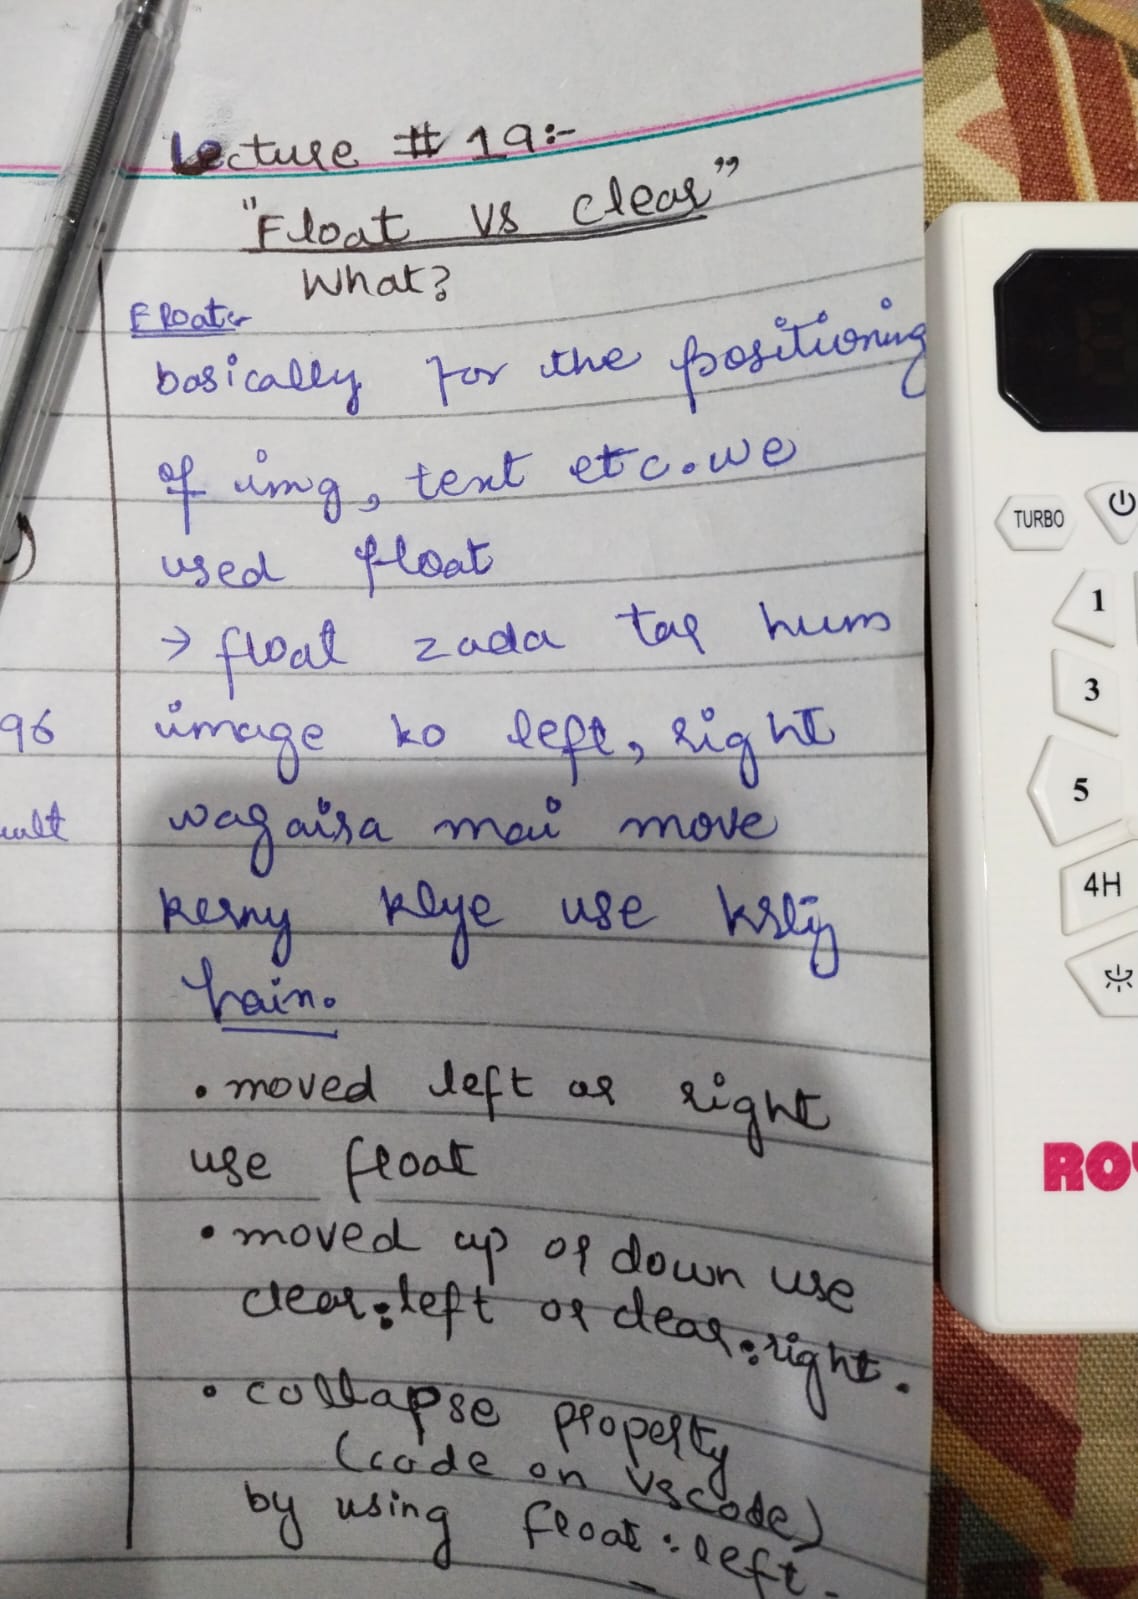 Lecture # 19:-
"Float vs clear"
What?
Float:-
basically for the positioning
of img, text etc. we
used float
→ float zada tar hum
96 image ko left, right
ult wagaira mai move
kerny klye use krty
hain.
• moved left or right
use float
• moved up or down use
clear:left or clear:right.
• collapse property
(code on vscode)
by using float:left.
TURBO
1
3
5
4H
RO